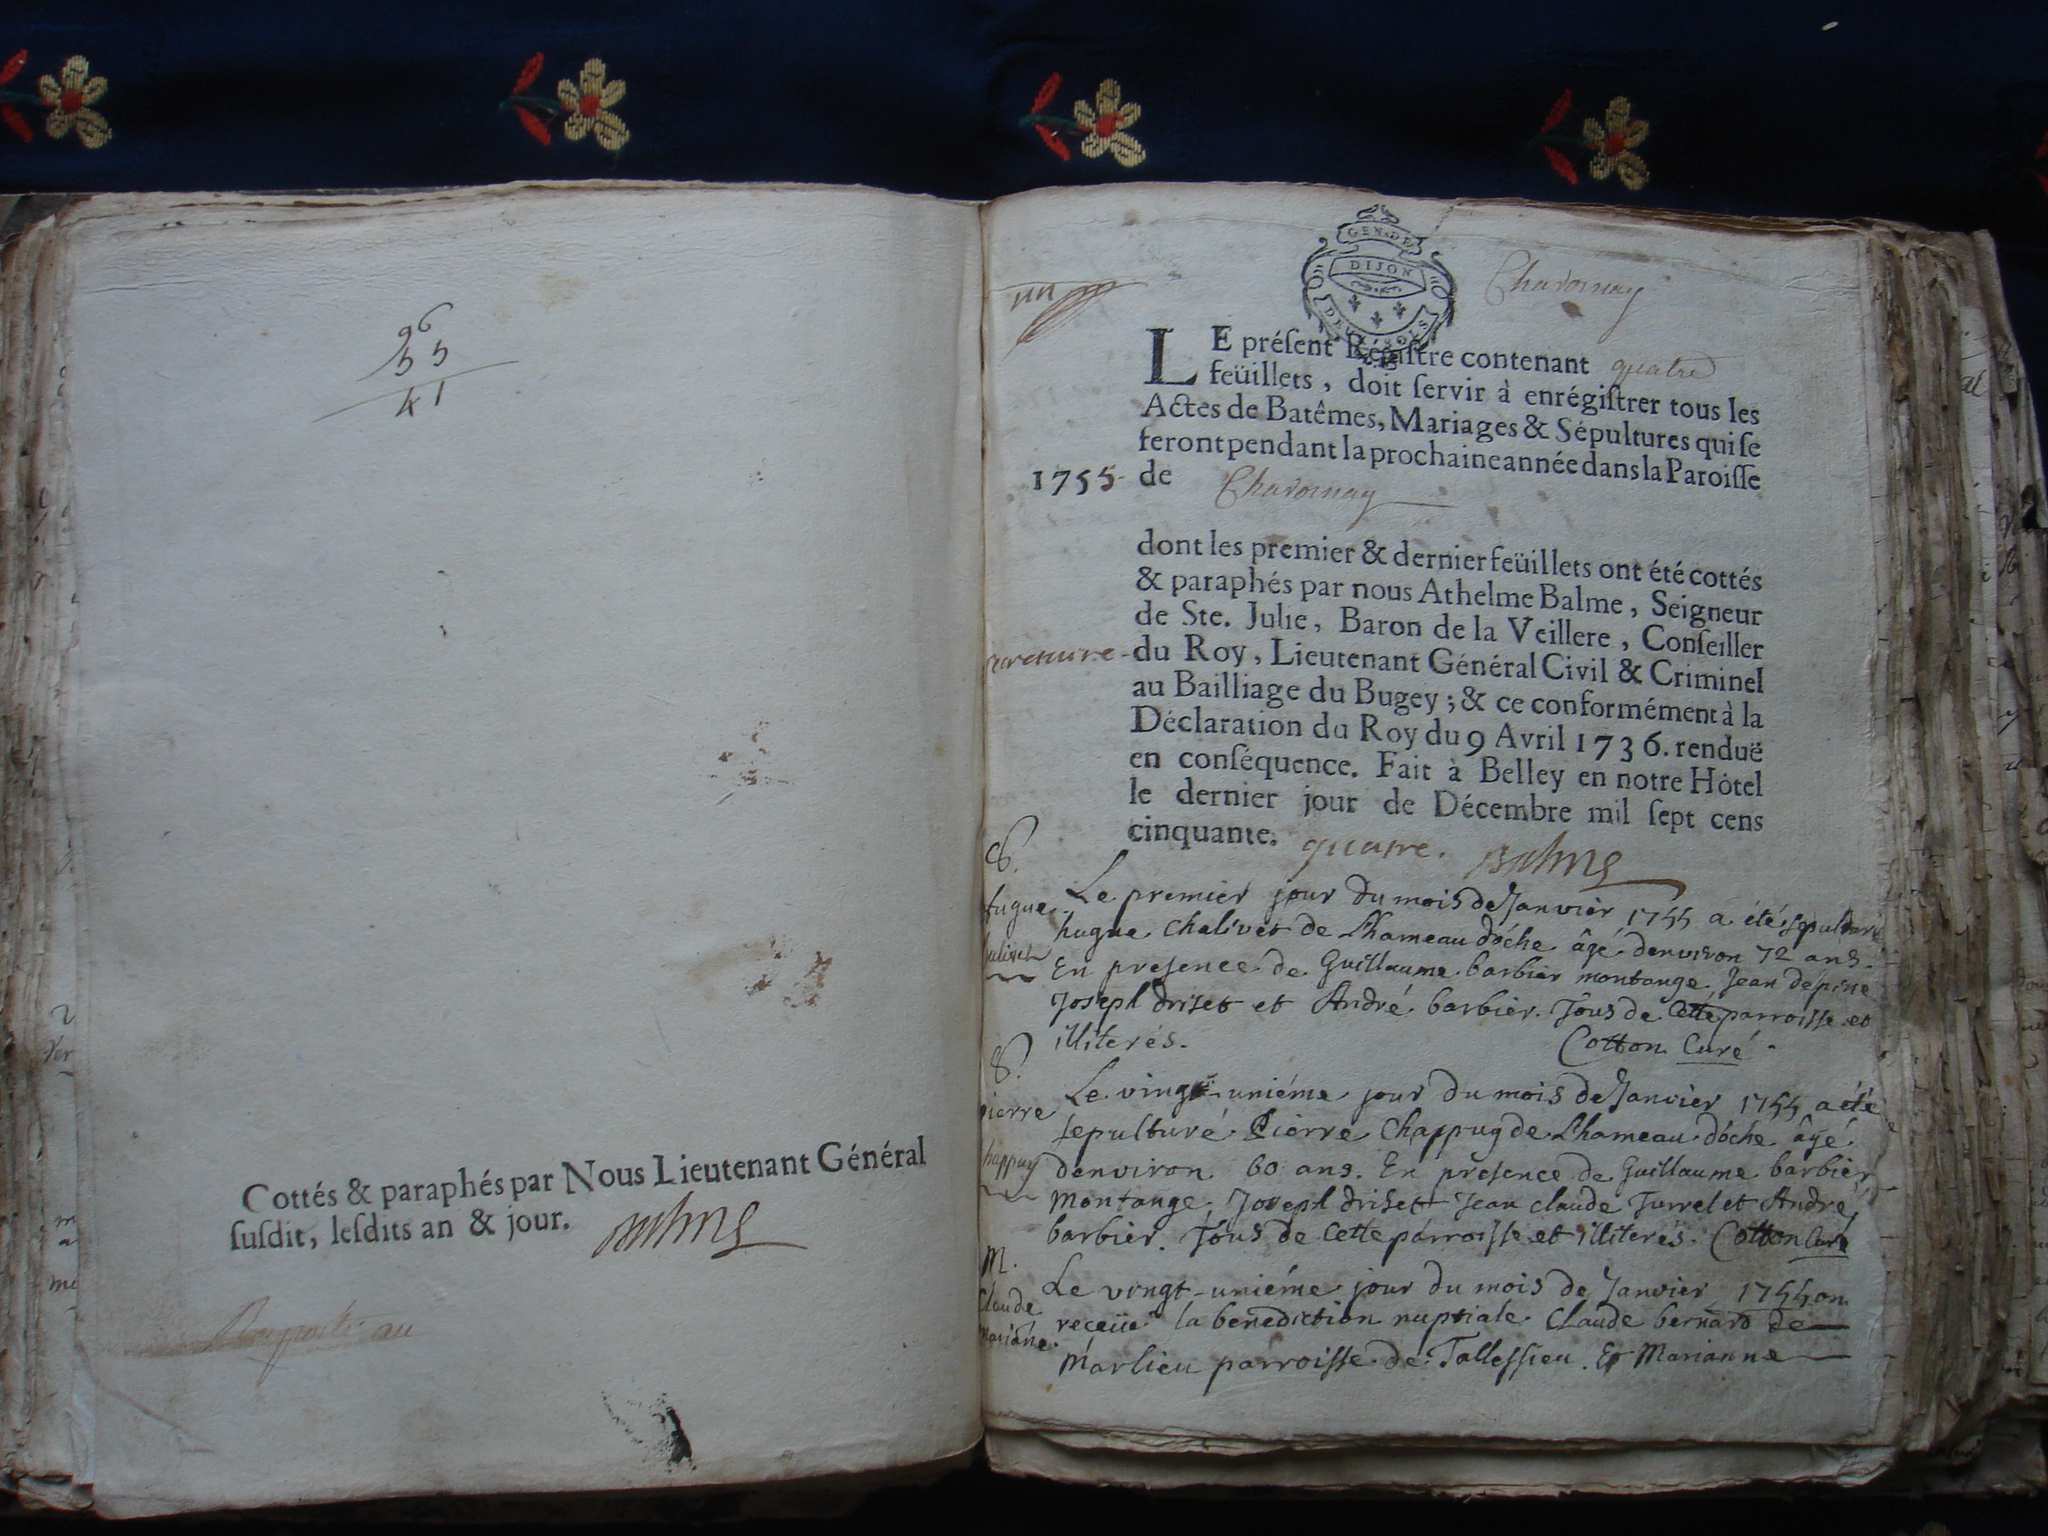 96
55
41
Cottés & paraphés par Nous Lieutenant Général
susdit, lesdits an & jour. Balme
au
un
GEN. DE
DIJON
DEUX SOLS
Chavornay
LE présent Régistre contenant quatre
feüillets, doit servir à enrégistrer tous les
Actes de Batêmes, Mariages & Sépultures qui se
feront pendant la prochaine année dans la Paroisse
1755 de Chavornay
dont les premier & dernier feüillets ont été cottés
& paraphés par nous Athelme Balme, Seigneur
de Ste. Julie, Baron de la Veillere, Conseiller
du Roy, Lieutenant Général Civil & Criminel
au Bailliage du Bugey; & ce conformément à la
Déclaration du Roy du 9 Avril 1736. renduë
en conséquence. Fait à Belley en notre Hôtel
le dernier jour de Décembre mil sept cens
cinquante. quatre. Balme
S.
hugue
Le premier jour du mois de Janvier 1755 a été sepulturé
hugue Chalivet de Lhameau dóche âgé denviron 72 ans.
En presence de Guillaume barbier montange. Jean depine
Joseph driset et André barbier. Tous de Cette parroisse et
illiterés. Cotton Curé
S.
pierre
Chappuy
Le vingt-uniéme jour du mois de Janvier 1755 a été
sepulturé Pierre Chappuy de Lhameau dóche âgé
denviron 60 ans. En presence de Guillaume barbier
Montange, Joseph driset Jean claude Jurrel et André
barbier. Tous de Cette parroisse et illiterés. Cotton Curé
M.
Claude
Mariane
Le vingt-uniéme jour du mois de Janvier 1755 on
receüe la benediction nuptiale Claude bernard de
Marlieu parroisse de Tallessieu. Et Marianne